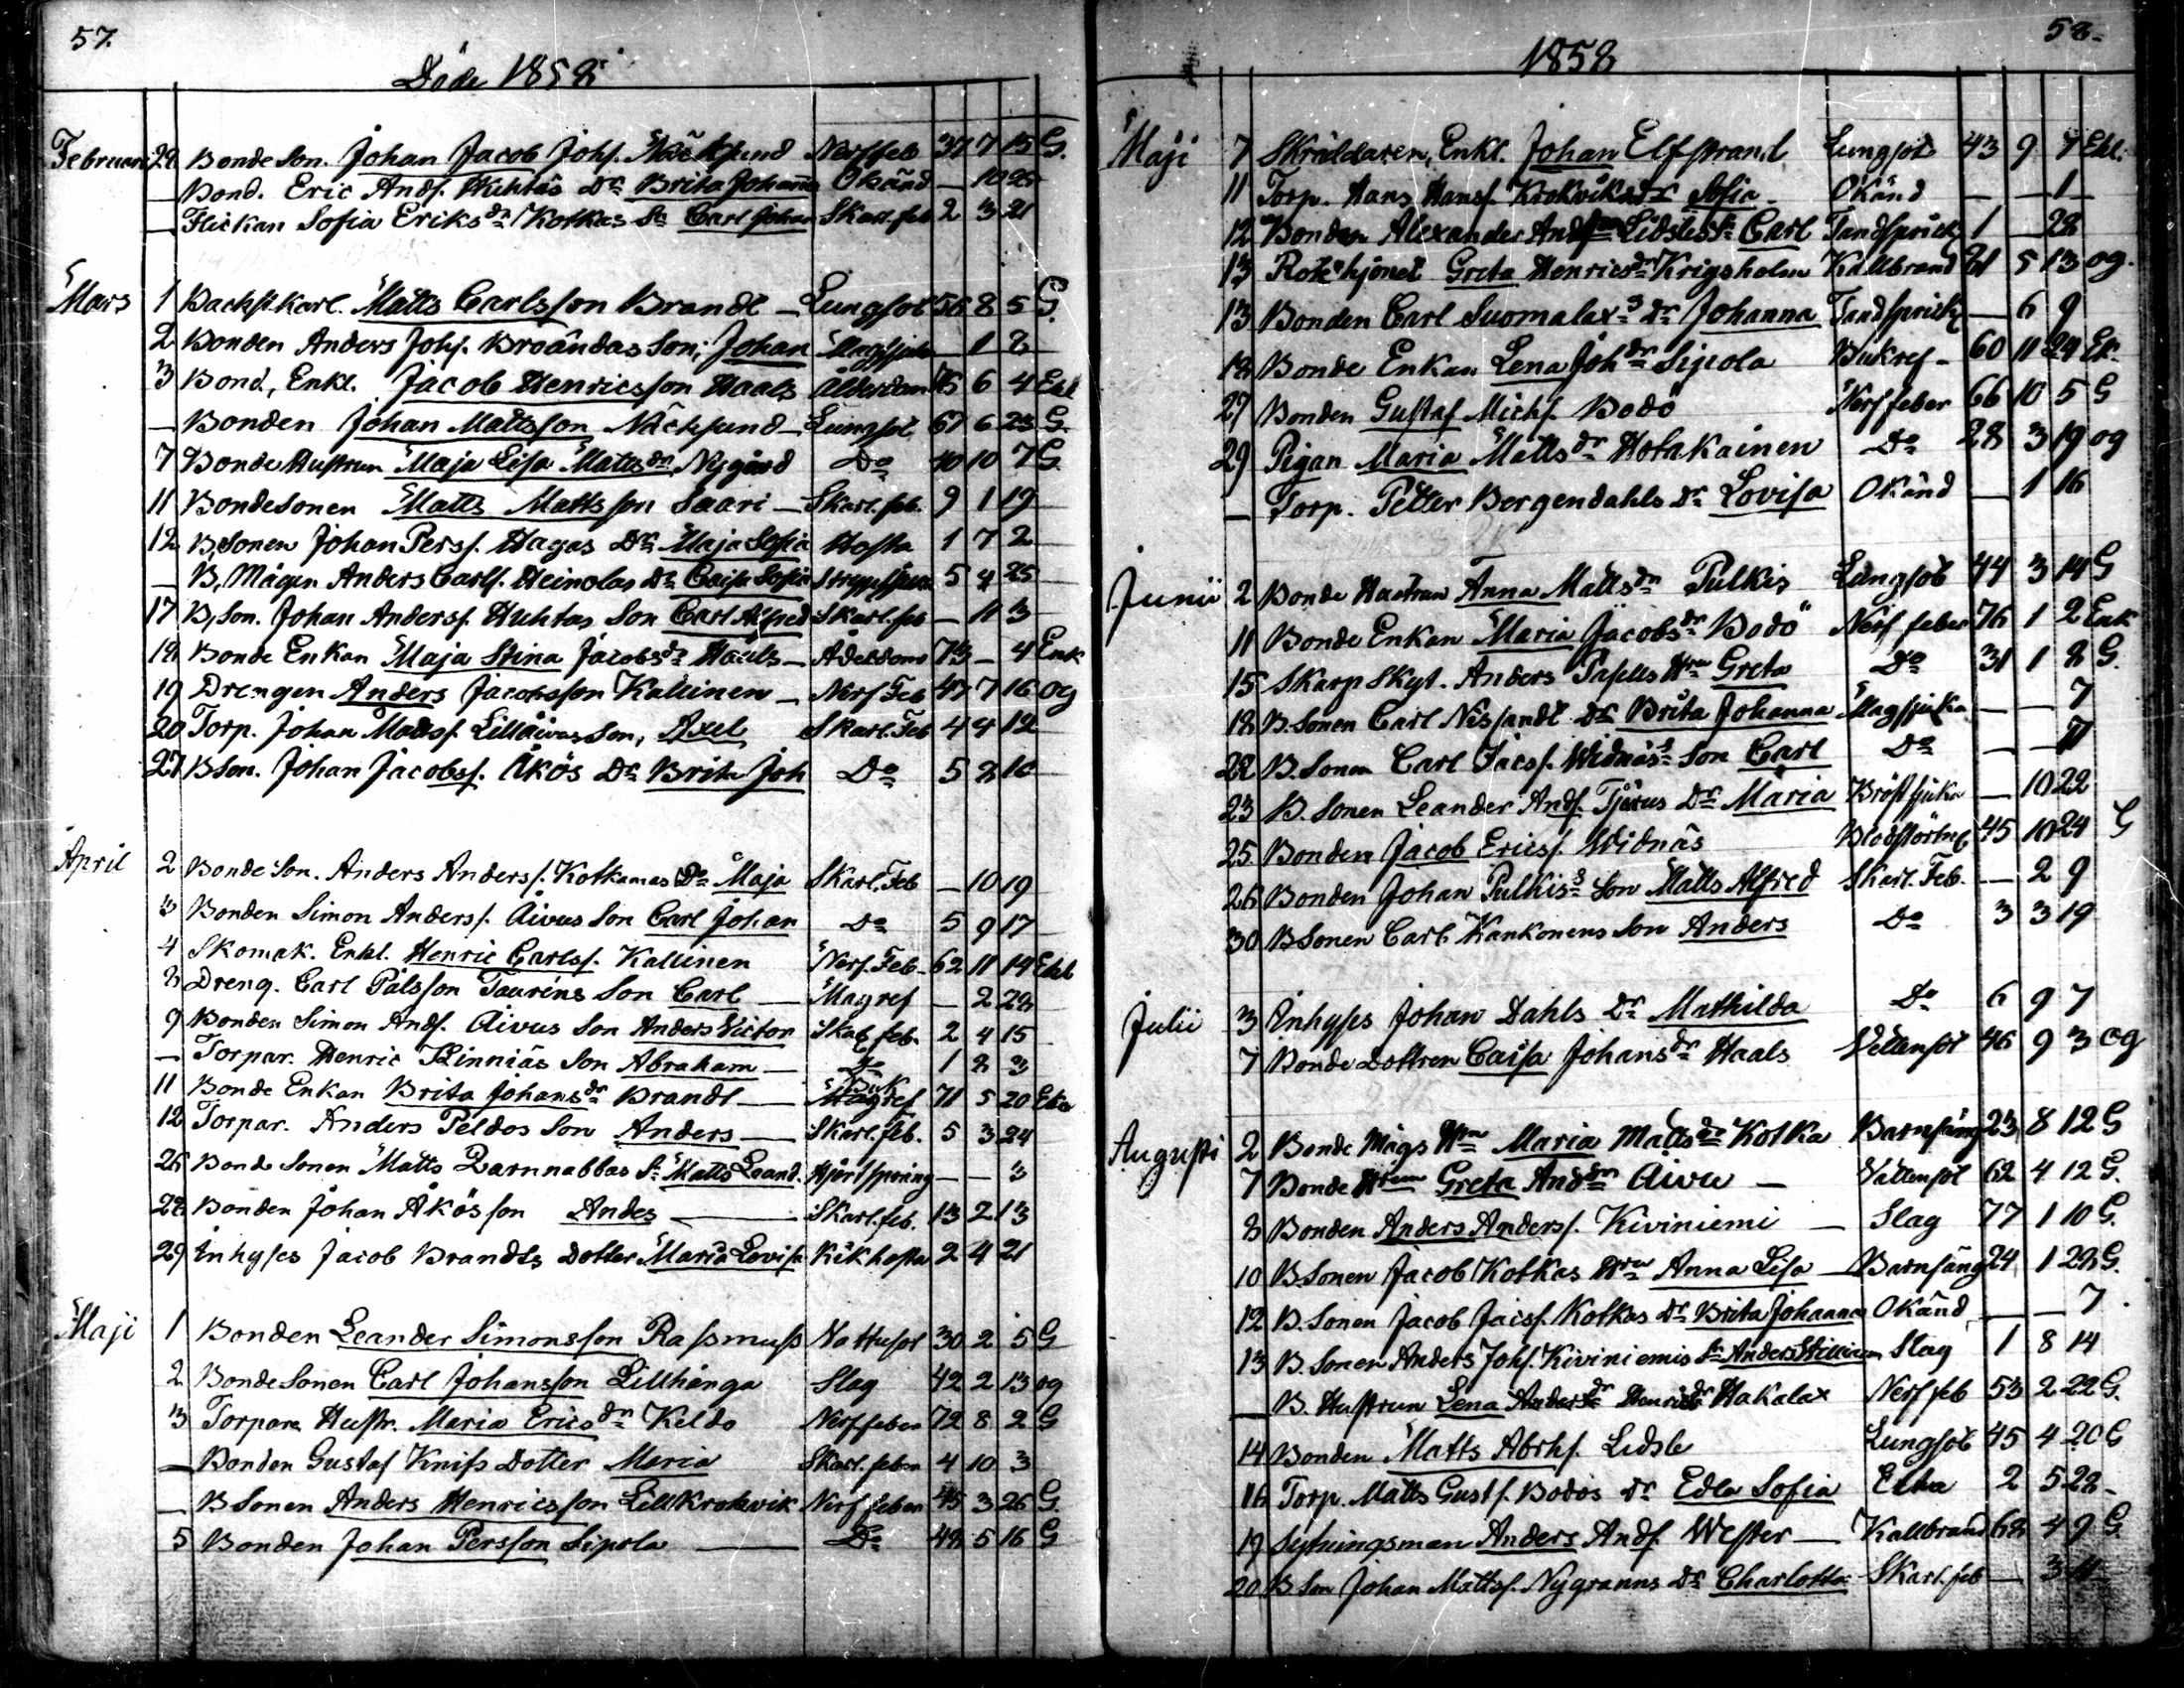 57.
Döde 1858
Februari 28 Bonde Son. Johan Jacob Johs. Näcksund Nerffeb 37 7 15 G.
— Bond. Eric Ands. Huhtas Dr Brita Johanna Okänd — 10 28
— Flickan Sofia Eriksdr Kotkas Sn Carl Johan Skarl. feb 2 3 21
Mars 1 Backst.karl. Matts Carlsson Brandt — Lungsot 56 8 5 G.
2 Bonden Anders Johs. Broändas Son, Johan Magsjuk — 1 8
3 Bond, Enkl. Jacob Henricsson Haals Ålderdom 75 6 4 Enkl
— Bonden Johan Mattsson Näcksund — Lungsot 67 6 23 G.
7 Bonde Hustrun Maja Lisa Mattsdr Nygård Do 40 10 7 G
11 BondeSonen Matts Mattsson Saari — Skarl. feb. 9 1 19
12 B,Sonen Johan Perss. Hagas Dr Maja Sofia Hosta 1 7 2
— B, Mågen Anders Carls. Heinolas Dr Caisa Sofia 5 4 25
17 B,Son. Johan Anderss. Huhtas Son Carl Alfred Skarl. feb — 11 3
18 Bonde Enkan Maja Stina Jacobsdr Haals — Ålderdom 73 — 4 Enk
19 Drengen Anders Jacobsson Kallinen — Nerf Feb 47 7 16 og
20 Torp. Johan Matss. Lillåivas Son, Axel Skarl. Feb 4 4 12
27 BSon. Johan Jacobss. Åkös Dr Brita Joh Do 5 2 16
April 2 Bonde Son. Anders Anderss. Kotkamas Dr Maja Skarl. Feb — 10 19
3 Bonden Simon Anderss. Aivus Son Carl Johan Do 5 9 17
4 Skomak. Enkl. Henric Carlss. Kallinen Nerf. Feb. 62 11 14 Ekl
8 Dreng. Carl Pålsson Taurens Son Carl — Magref — 2 28
9 Bonden Simon Ands. Aivus Son Anders Victor Skarl. feb. 2 4 15
— Torpar. Henric Kinniäs Son Abraham — Do 1 2 3
11 Bonde Enkan Brita Johansdr Brandt — Buk Magref 71 5 20 Eka
12 Torpar. Anders Peldos Son Anders — Skarl. feb. 5 3 24
26 Bonde Sonen Matts Qarnnabbas Sn Matts Leand. Hjertspräng — — 3
28 Bonden Johan Åkös son Andes — Skarl. feb. 13 2 13
29 Inhyses Jacob Brandts Dotter Maria Lovisa Kikhosta 2 4 21
Maji 1 Bonden Leander Simonsson Rasmuss Vattusot 30 2 5 G
2 BondeSonen Carl Johansson Lillhånga Slag 42 2 13 og
3 Torpare Hustr. Maria Ericsdr Keldo Nerffeber 72 8 2 G
— Bonden Gustaf Knifs Dotter Maria Skarl. feber 4 10 3
— BSonen Anders Henricsson Lillkrokvik Nerffeber 45 3 26 G
5 Bonden Johan Persson Sipola — Do 48 5 16 G
58.
1858
Maji 7 Skräddaren, Enkl. Johan Elfstrand Lungsot 43 9 7 Ekl.
11 Torp. Hans Hanss. Krokviks Dr Sofia — Okänd — — 1
12 Bonden Alexander Andsson Lidsles Sn Carl Tandsprick 1 — 28
13 Rotehjonet Greta Henricsdr Krigsholm Kallbrand 81 5 13 og.
13 Bonden Carl Suomalax's Dr Johanna Tandsprick — 6 9
18 Bonde Enkan Lena Johdr Sipola Bukref — 60 11 24 Ek.
27 Bonden Gustaf Michs. Bodö Nerffeber 66 10 5 G
29 Pigan Maria Mattsdr Hotakainen Do 28 3 19 og
— Torp. Petter Bergendahls Dr Lovisa Okänd — 1 16
Junii 2 Bonde Hustrun Anna Mattsdr Pulkis Lungsot 44 3 14 G
11 Bonde Enkan Maria Jacobsdr Bodö Nerf feber 76 1 2 Enk
15 Skarp Skyt. Anders Pasells Hru Greta Do 31 1 2 G.
18 B.Sonen Carl Nissandt Dr Brita Johanna Magsjuka — — 7
22 B.Sonen Carl Jacss. Widnäs's Son Carl Do — — 11
23 B.Sonen Leander Ands. Tjärus Dr Maria Bröstsjuka — 10 22
25. Bonden Jacob Ericss. Widnäs Blodstörtn 45 10 24 G
26 Bonden Johan Pulkis's Son Matts Alfred Skarl. Feb. — 2 9
30 BSonen Carl Kankonens Son Anders Do 3 3 19
Julii 3 Inhyses Johan Dahls Dr Mathilda Do 6 9 7
7 Bonde Dottren Caisa Johansdr Haals Vattensot 46 9 3 og
Augusti 2 Bonde Mågs Hru Maria Mattsdr Kotka Barnsäng 23 8 12 G
7 Bonde Hrun Greta Anddr Aivu — Vattensot 62 4 12 G.
8 Bonden Anders Anderss. Kiviniemi — Slag 77 1 10 G.
10 B.Sonen Jacob Kotkas Hru Anna Lisa — Barnsäng 24 1 28 G.
12 B.Sonen Jacob Jacss. Kotkas Dr Brita Johanna Okänd — — 7
13 B.Sonen Anders Johs. Kiviniemis Sn Anders Slag 1 8 14
— B. Hustrun Lena Andersdr Henricsdr Hakalax Nerf feb 53 2 22 G.
14 Bonden Matts Abrhs. Lidsle Lungsot 45 4 20 G
16 Torp. Matts Gusts. Bodös Dr Edla Sofia Elta 2 5 28
19 Sytningsman Anders Ands. Wester — Kallbrand 68 4 9 G.
20 B Son Johan Mattss. Nygranns Dr Charlotta Skarl. feb — 3 11